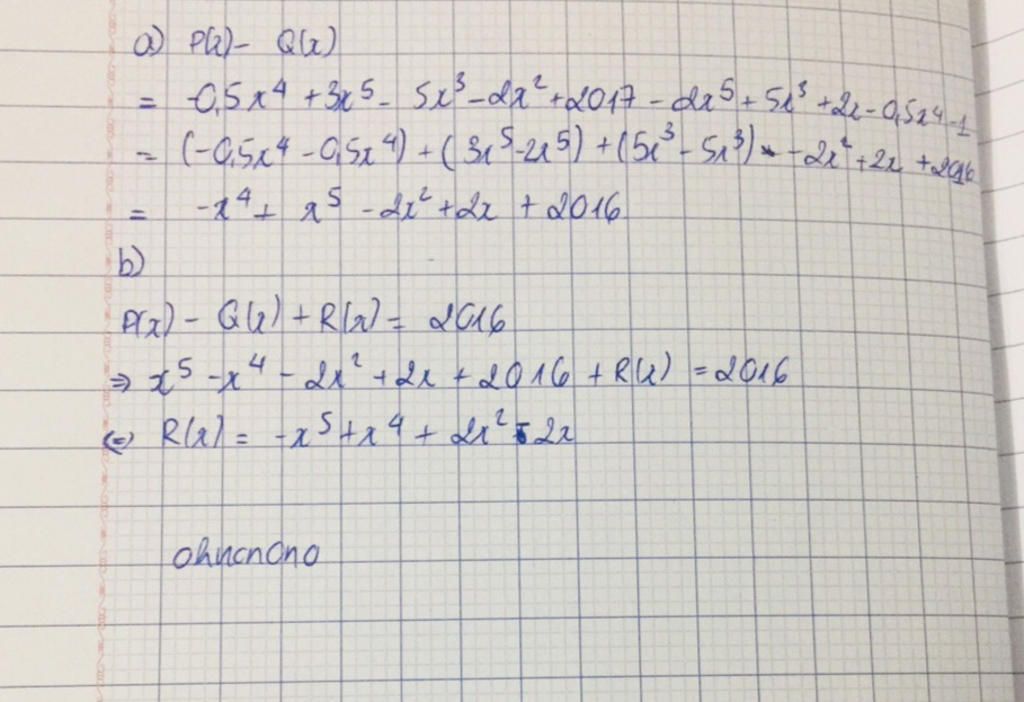 a) P(x) - Q(x)
= -0,5x⁴ + 3x⁵ - 5x³ - 2x² + 2017 - 2x⁵ + 5x³ + 2x - 0,5x⁴ - 1
= (-0,5x⁴ - 0,5x⁴) + (3x⁵ - 2x⁵) + (5x³ - 5x³) - 2x² + 2x + 2016
= -x⁴ + x⁵ - 2x² + 2x + 2016
b)
P(x) - Q(x) + R(x) = 2016
⇒ x⁵ - x⁴ - 2x² + 2x + 2016 + R(x) = 2016
⇔ R(x) = -x⁵ + x⁴ + 2x² - 2x